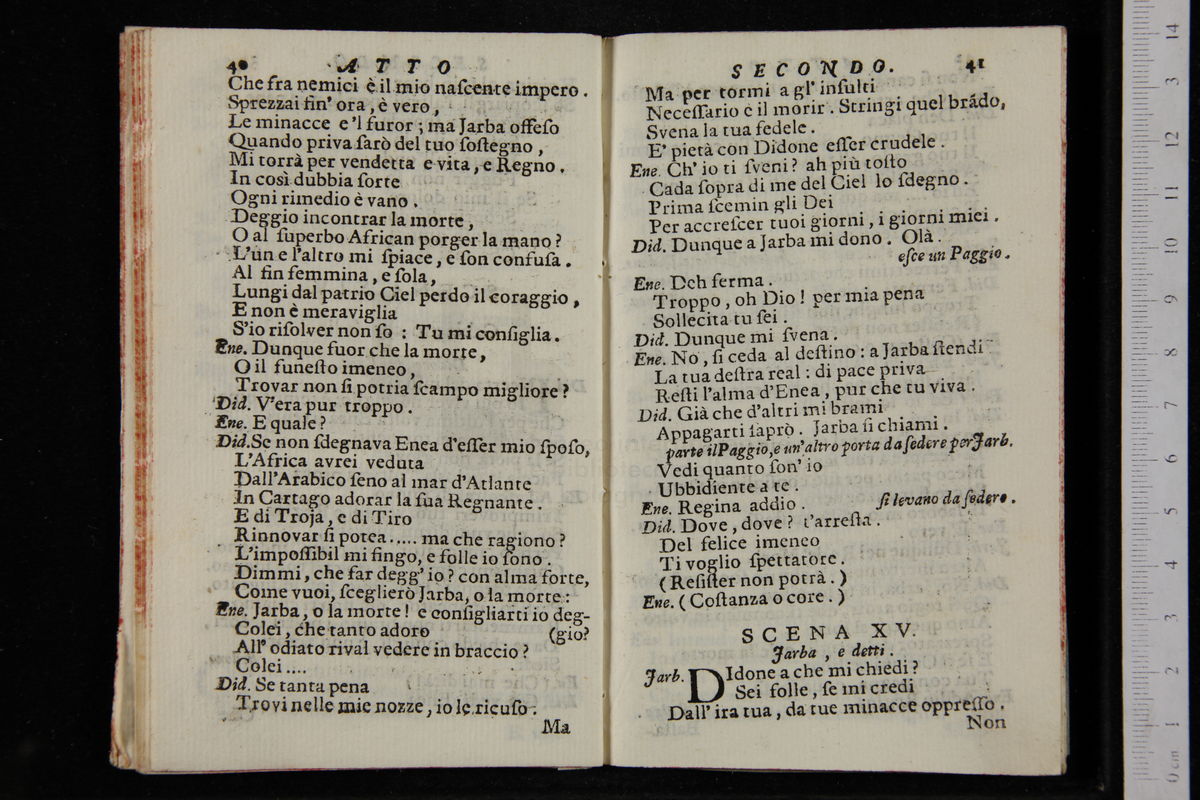 40 ATTO
Che fra nemici è il mio naſcente impero.
Sprezzai fin' ora, è vero,
Le minacce e 'l furor; ma Jarba offeſo
Quando priva ſarò del tuo ſoſtegno,
Mi torrà per vendetta e vita, e Regno.
In così dubbia ſorte
Ogni rimedio è vano.
Deggio incontrar la morte,
O al ſuperbo African porger la mano?
L'un e l'altro mi ſpiace, e ſon confuſa.
Al fin femmina, e ſola,
Lungi dal patrio Ciel perdo il coraggio,
E non è meraviglia
S'io riſolver non ſo: Tu mi conſiglia.
Ene. Dunque fuor che la morte,
O il funeſto imeneo,
Trovar non ſi potria ſcampo migliore?
Did. V'era pur troppo.
Ene. E quale?
Did. Se non ſdegnava Enea d'eſſer mio ſpoſo,
L'Africa avrei veduta
Dall'Arabico ſeno al mar d'Atlante
In Cartago adorar la ſua Regnante.
E di Troja, e di Tiro
Rinnovar ſi potea..... ma che ragiono?
L'impoſſibil mi fingo, e folle io ſono.
Dimmi, che far degg' io? con alma forte,
Come vuoi, ſceglierò Jarba, o la morte:
Ene. Jarba, o la morte! e conſigliarti io deg-
Colei, che tanto adoro (gio?
All' odiato rival vedere in braccio?
Colei....
Did. Se tanta pena
Trovi nelle mie nozze, io le ricuſo.
Ma
SECONDO. 41
Ma per tormi a gl' inſulti
Neceſſario è il morir. Stringi quel brádo,
Svena la tua fedele.
E' pietà con Didone eſſer crudele.
Ene. Ch' io ti ſveni? ah più toſto
Cada ſopra di me del Ciel lo ſdegno.
Prima ſcemin gli Dei
Per accreſcer tuoi giorni, i giorni miei.
Did. Dunque a Jarba mi dono. Olà.
eſce un Paggio.
Ene. Deh ferma.
Troppo, oh Dio! per mia pena
Sollecita tu ſei.
Did. Dunque mi ſvena.
Ene. No, ſi ceda al deſtino: a Jarba ſtendi
La tua deſtra real: di pace priva
Reſti l'alma d'Enea, pur che tu viva.
Did. Già che d'altri mi brami
Appagarti ſaprò. Jarba ſi chiami.
parte il Paggio, e un'altro porta da ſedere per Jarb.
Vedi quanto ſon' io
Ubbidiente a te.
Ene. Regina addio. ſi levano da ſedere.
Did. Dove, dove? t'arreſta.
Del felice imeneo
Ti voglio ſpettatore.
(Reſiſter non potrà.)
Ene. (Coſtanza o core.)
SCENA XV.
Jarba, e detti.
Jarb. DIdone a che mi chiedi?
Sei folle, ſe mi credi
Dall' ira tua, da tue minacce oppreſſo.
Non
14
13
12
11
10
9
8
7
6
5
4
3
2
1
0 cm